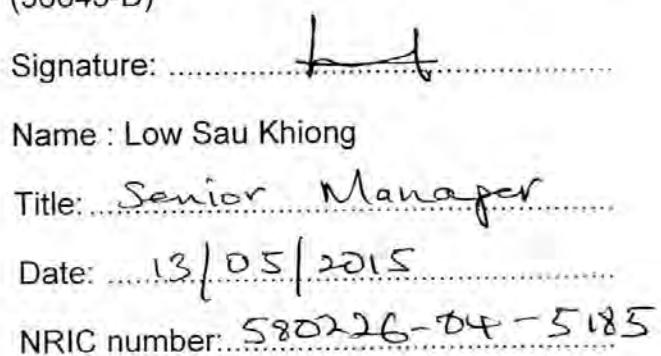 Signature: ........................
Name : Low Sau Khiong
Title: Senior Manager
Date: 13/05/2015
NRIC number: 580226-04-5185